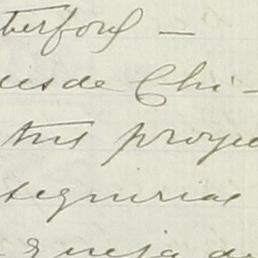 terford —
desde Chi-
tus proye
seguirias
queja de